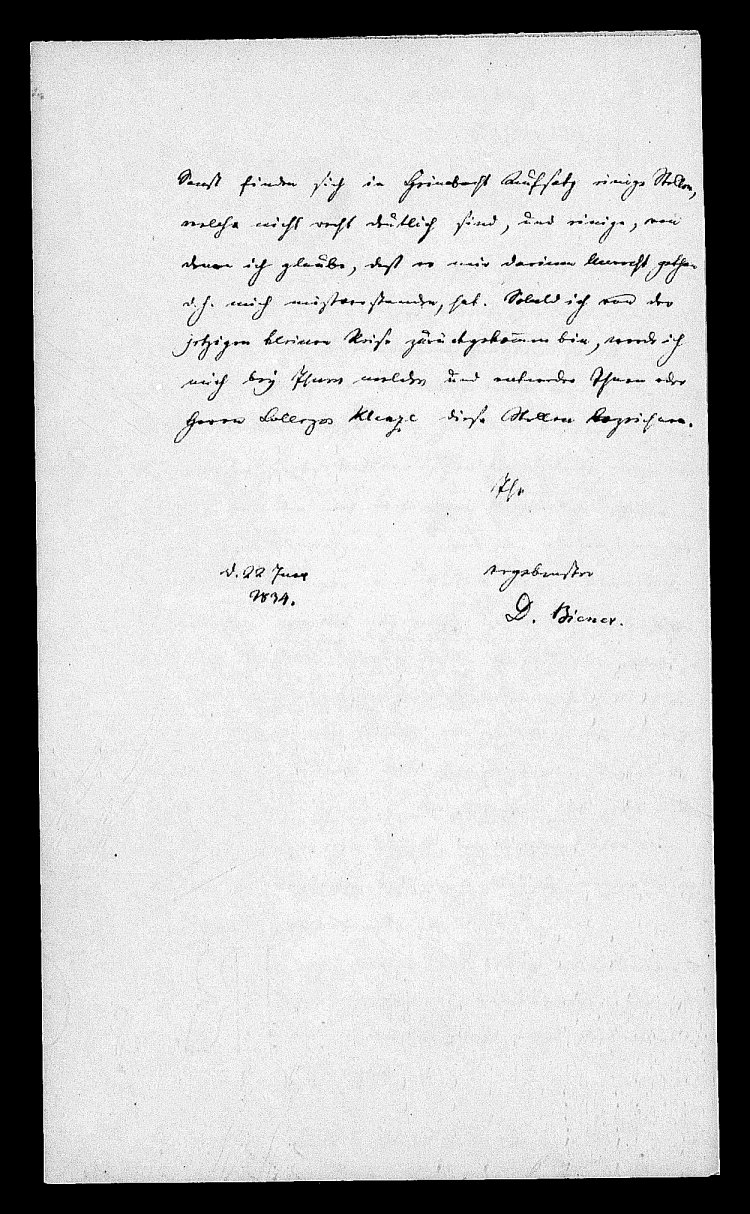 Sonst finden sich in Heimbachs Aufsatz einige Stellen,
welche nicht recht deutlich sind, und einige, von
denen ich glaube, daß er mir darinnen Unrecht gethan
d. h. mich misverstanden, hat. Sobald ich von der
jetzigen kleinen Reise zurückgekommen bin, werde ich
mich bey Ihnen melden und entweder Ihnen oder
Herrn Collegen Klenze diese Stellen bezeichnen.
Ihr
d. 22 Juny
ergebenster
1834.
D. Biener.